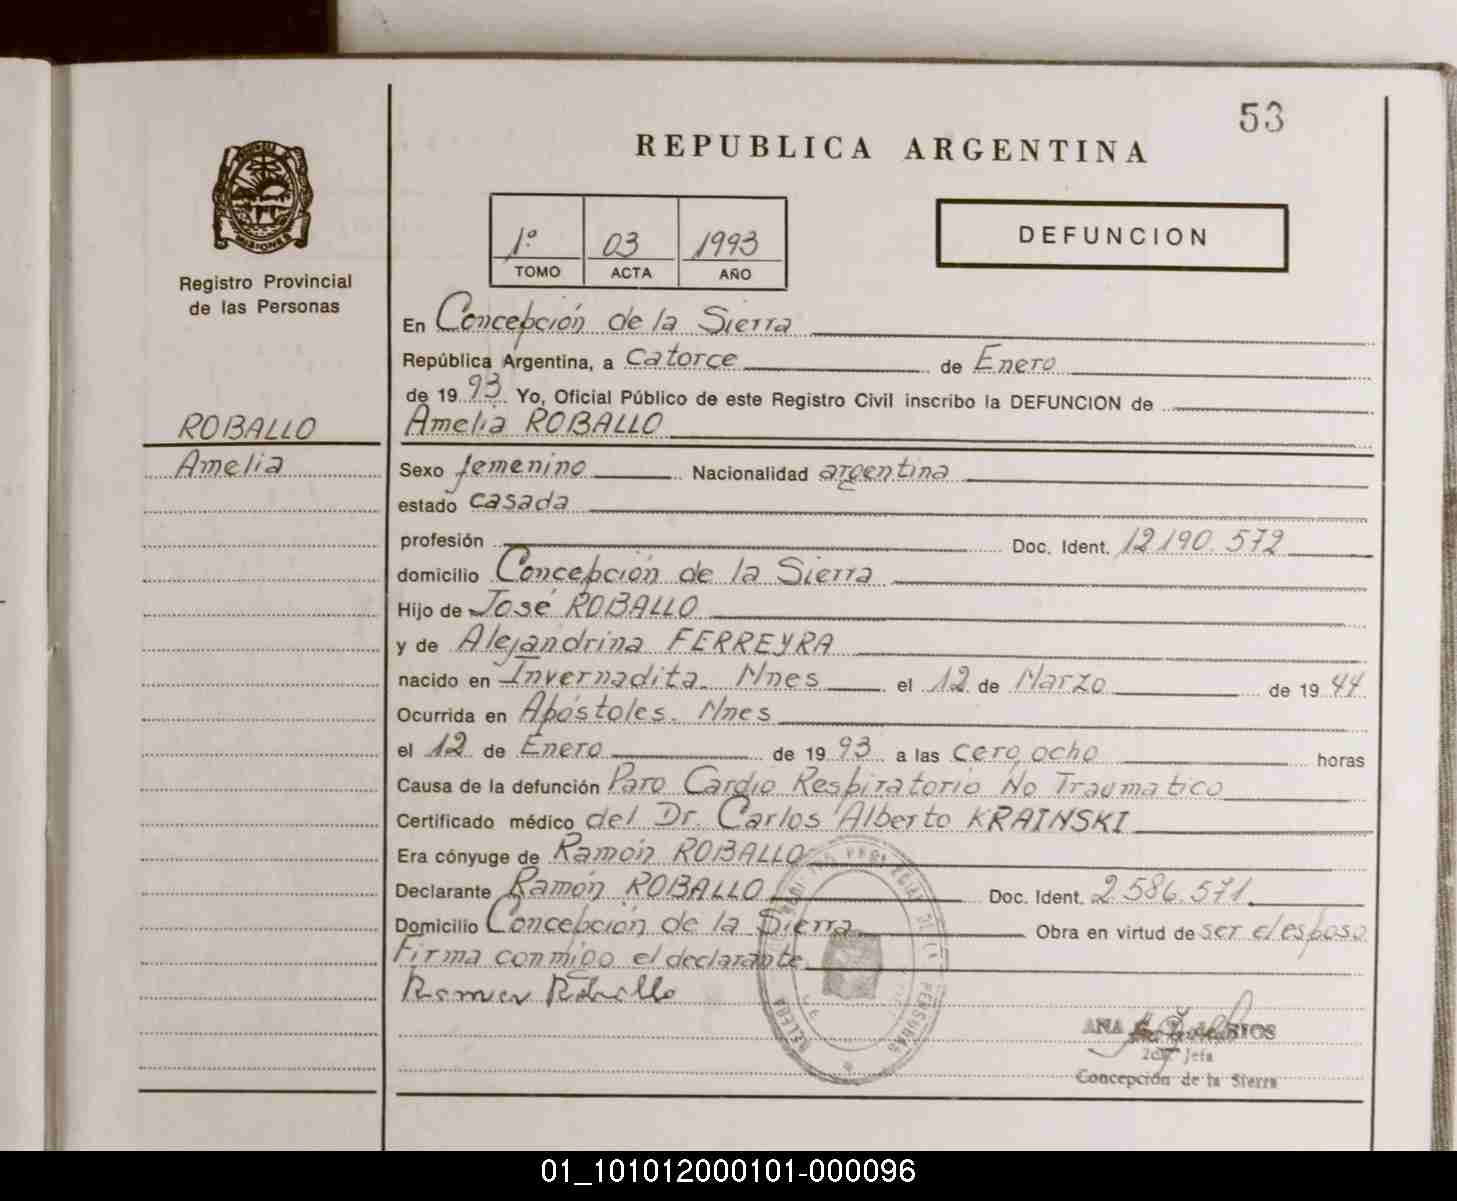 53
REPUBLICA ARGENTINA
MISIONES
Registro Provincial
de las Personas
1º 03 1993
TOMO ACTA AÑO
DEFUNCION
En Concepción de la Sierra
República Argentina, a catorce de Enero
de 19 93 Yo, Oficial Público de este Registro Civil inscribo la DEFUNCION de
Amelia ROBALLO
ROBALLO
Amelia
Sexo femenino Nacionalidad argentina
estado casada
profesión Doc. Ident. 12190.572
domicilio Concepción de la Sierra
Hijo de José ROBALLO
y de Alejandrina FERREYRA
nacido en Invernadita. Mnes el 12 de Marzo de 19 44
Ocurrida en Apóstoles. Mnes
el 12 de Enero de 19 93 a las cero ocho horas
Causa de la defunción Paro Cardio Respiratorio No Traumatico
Certificado médico del Dr. Carlos Alberto KRAINSKI
Era cónyuge de Ramón ROBALLO
Declarante Ramón ROBALLO Doc. Ident. 2.586.571
Domicilio Concepción de la Sierra Obra en virtud de ser el esposo
Firma conmigo el declarante.
Ramon Roballo
ANA RIOS
Jefa
Concepción de la Sierra
01_101012000101-000096